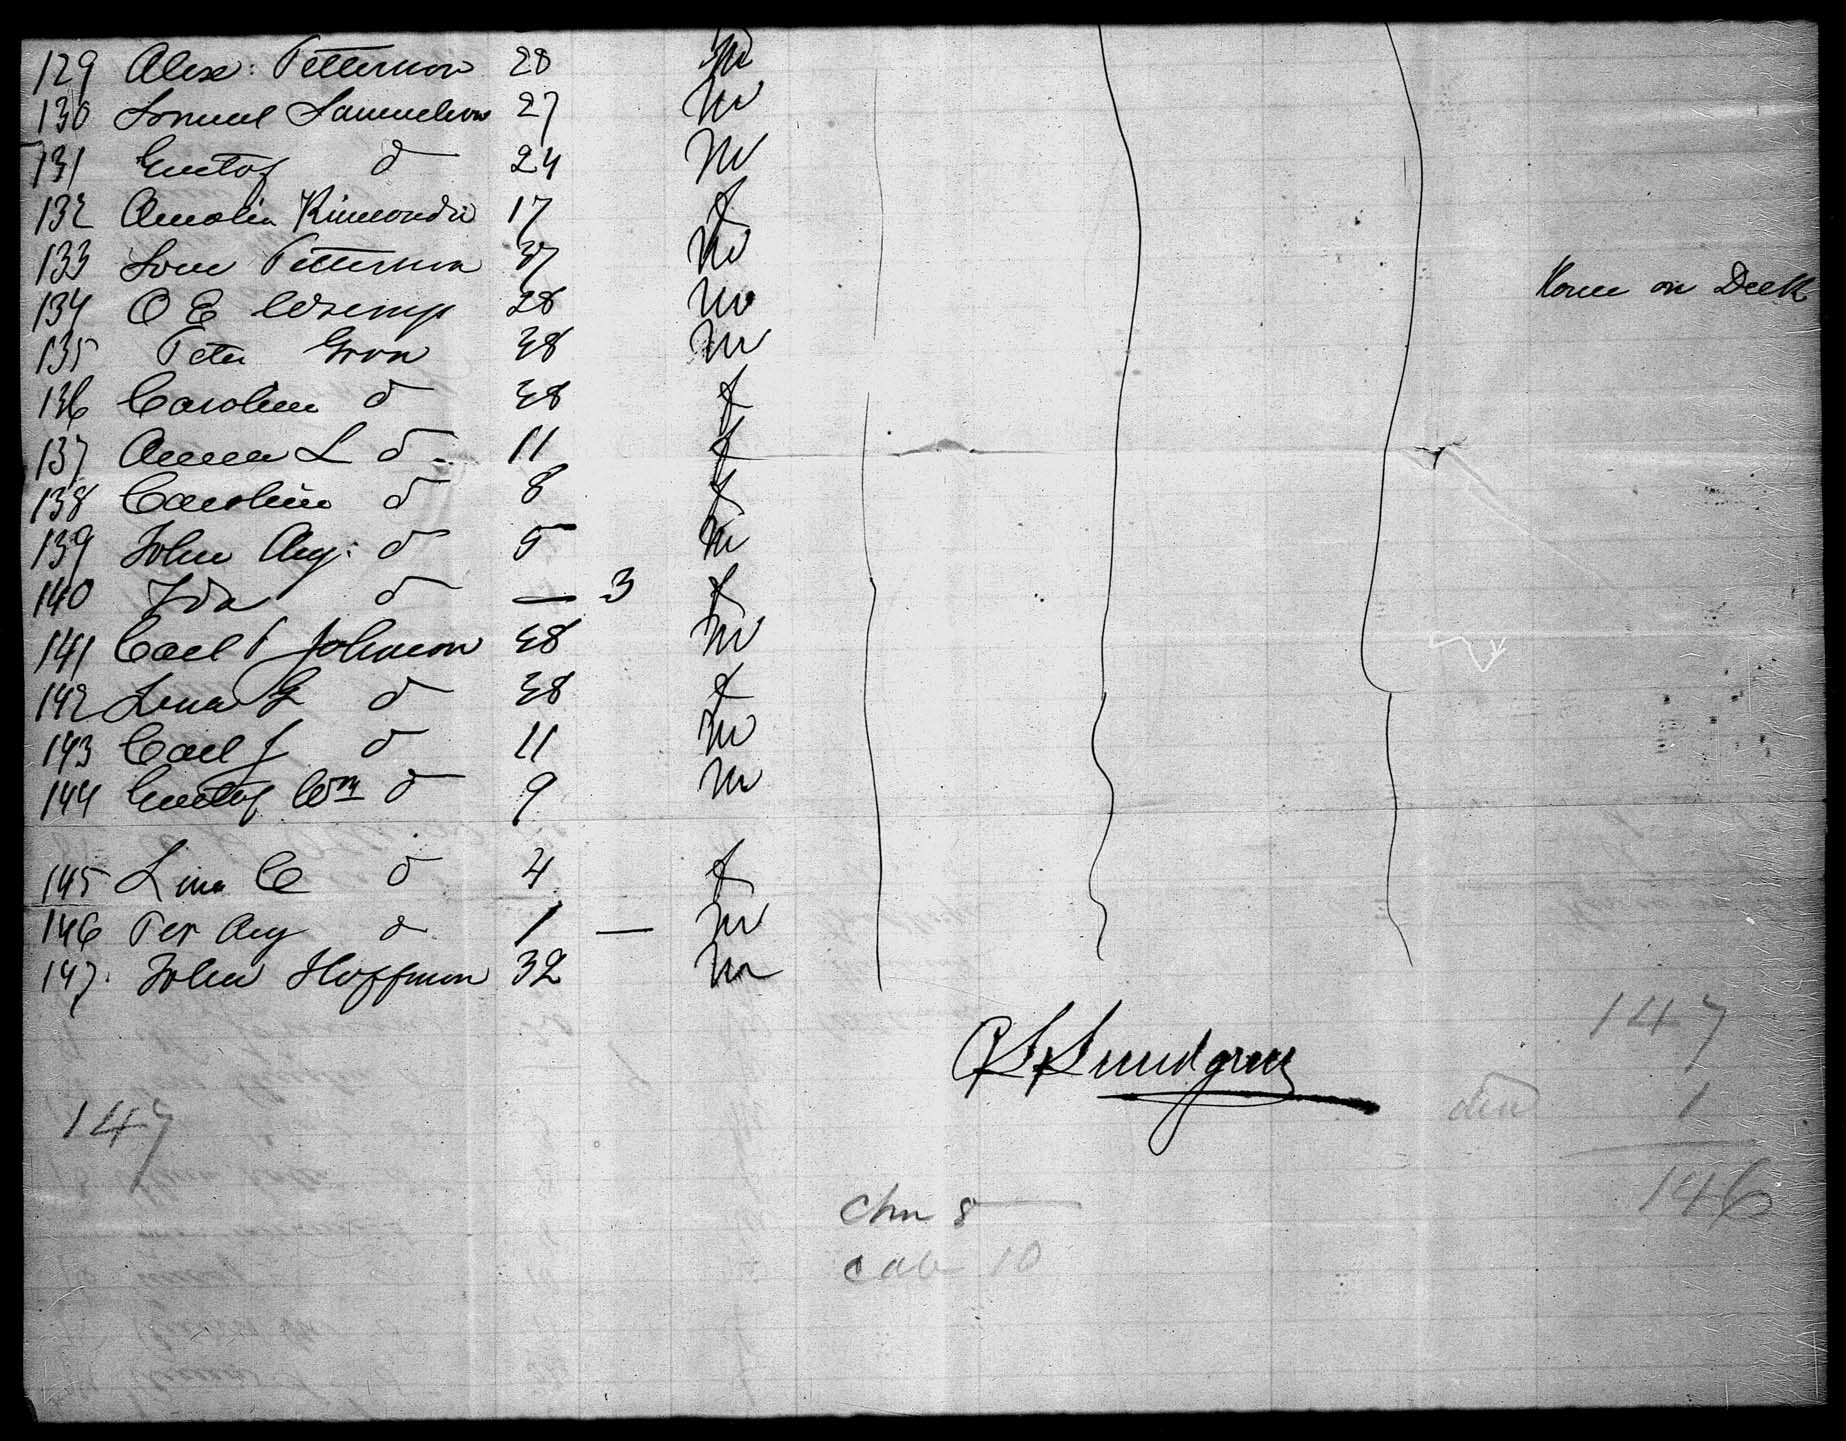 129 Alex: Petterson 28 m
130 Samuel Samuelson 27 m
131 Gustaf d 24 m
132 Amalia 17 f
133 Petterson 37 m
134 O E 28 m
135 Peter Gron 38 m
136 Caroline d 38 f
137 Anna L d 11 f
138 Caroline d 8 f
139 John Aug: d 5 m
140 Ida d — 3 f
141 Carl P Johnson 38 m
142 Lena G d 38 f
143 Carl J d 11 m
144 Gustaf Wm d 9 m
145 Lina C d 4 f
146 Per Aug d 1 — m
147. John Hoffman 32 m
on Deck
Lundgren
147
147
1
146
8
10